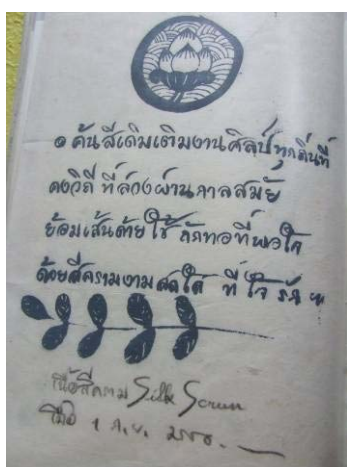 ๏ ค้นสีเดิมเติมงานศิลป์ทุกถิ่นที่
คงวิถี ที่ล่วงผ่านกาลสมัย
ย้อมเส้นด้ายใช้ ถักทอที่พอใจ
ด้วยสีครามงามสดใส ที่ใจรัก ฯ
สีคราม Silk Screen
เมื่อ 1 ก.ย.